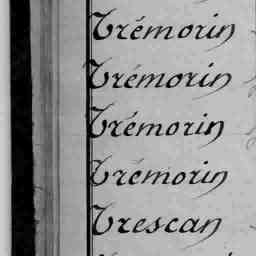 Trémorin
Trémorin
Trémorin
Trémorin
Trescan